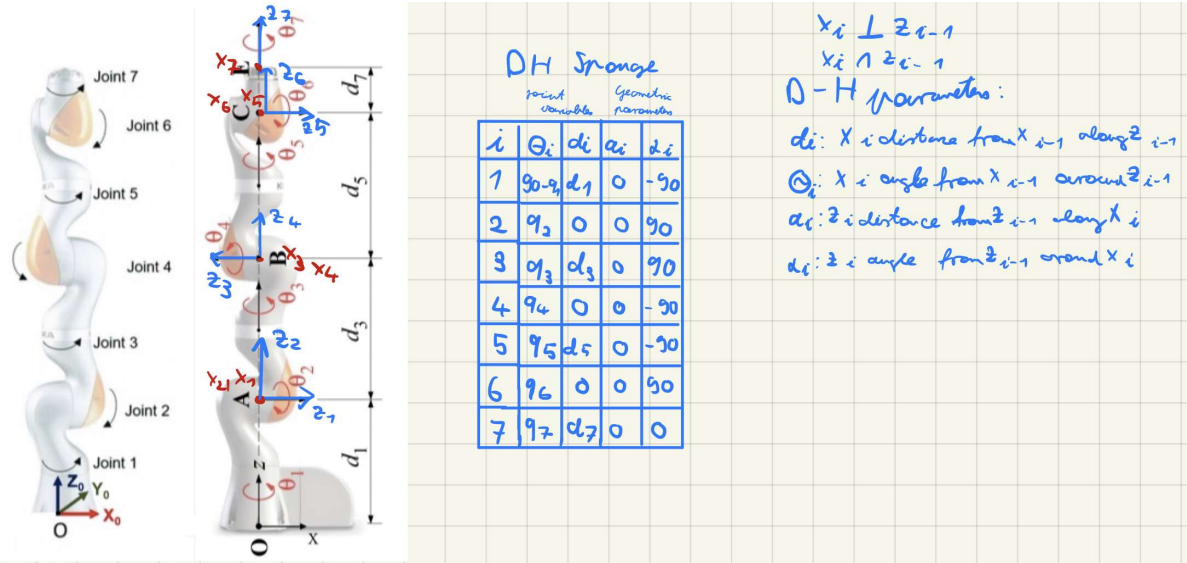 Joint 7
Joint 6
Joint 5
Joint 4
Joint 3
Joint 2
Joint 1
Z₀
Y₀
X₀
O
z7
θ₇
x7
E
z6
θ₆
x6 x5
C
z5
d₇
θ₅
d₅
z4
θ₄
B
x3 x4
z3
θ₃
d₃
z2
x2 x1
θ₂
A
z1
d₁
z
θ₁
O
x
DH Sponge
joint variables
Geometric parameters
i θi di ai αi
1 90-q1 d1 0 -90
2 q2 0 0 90
3 q3 d3 0 90
4 q4 0 0 -90
5 q5 d5 0 -90
6 q6 0 0 90
7 q7 d7 0 0
xi ⊥ zi-1
xi ∩ zi-1
D-H parameters:
di: xi distance from xi-1 along zi-1
θi: xi angle from xi-1 around zi-1
ai: zi distance from zi-1 along xi
αi: zi angle from zi-1 around xi